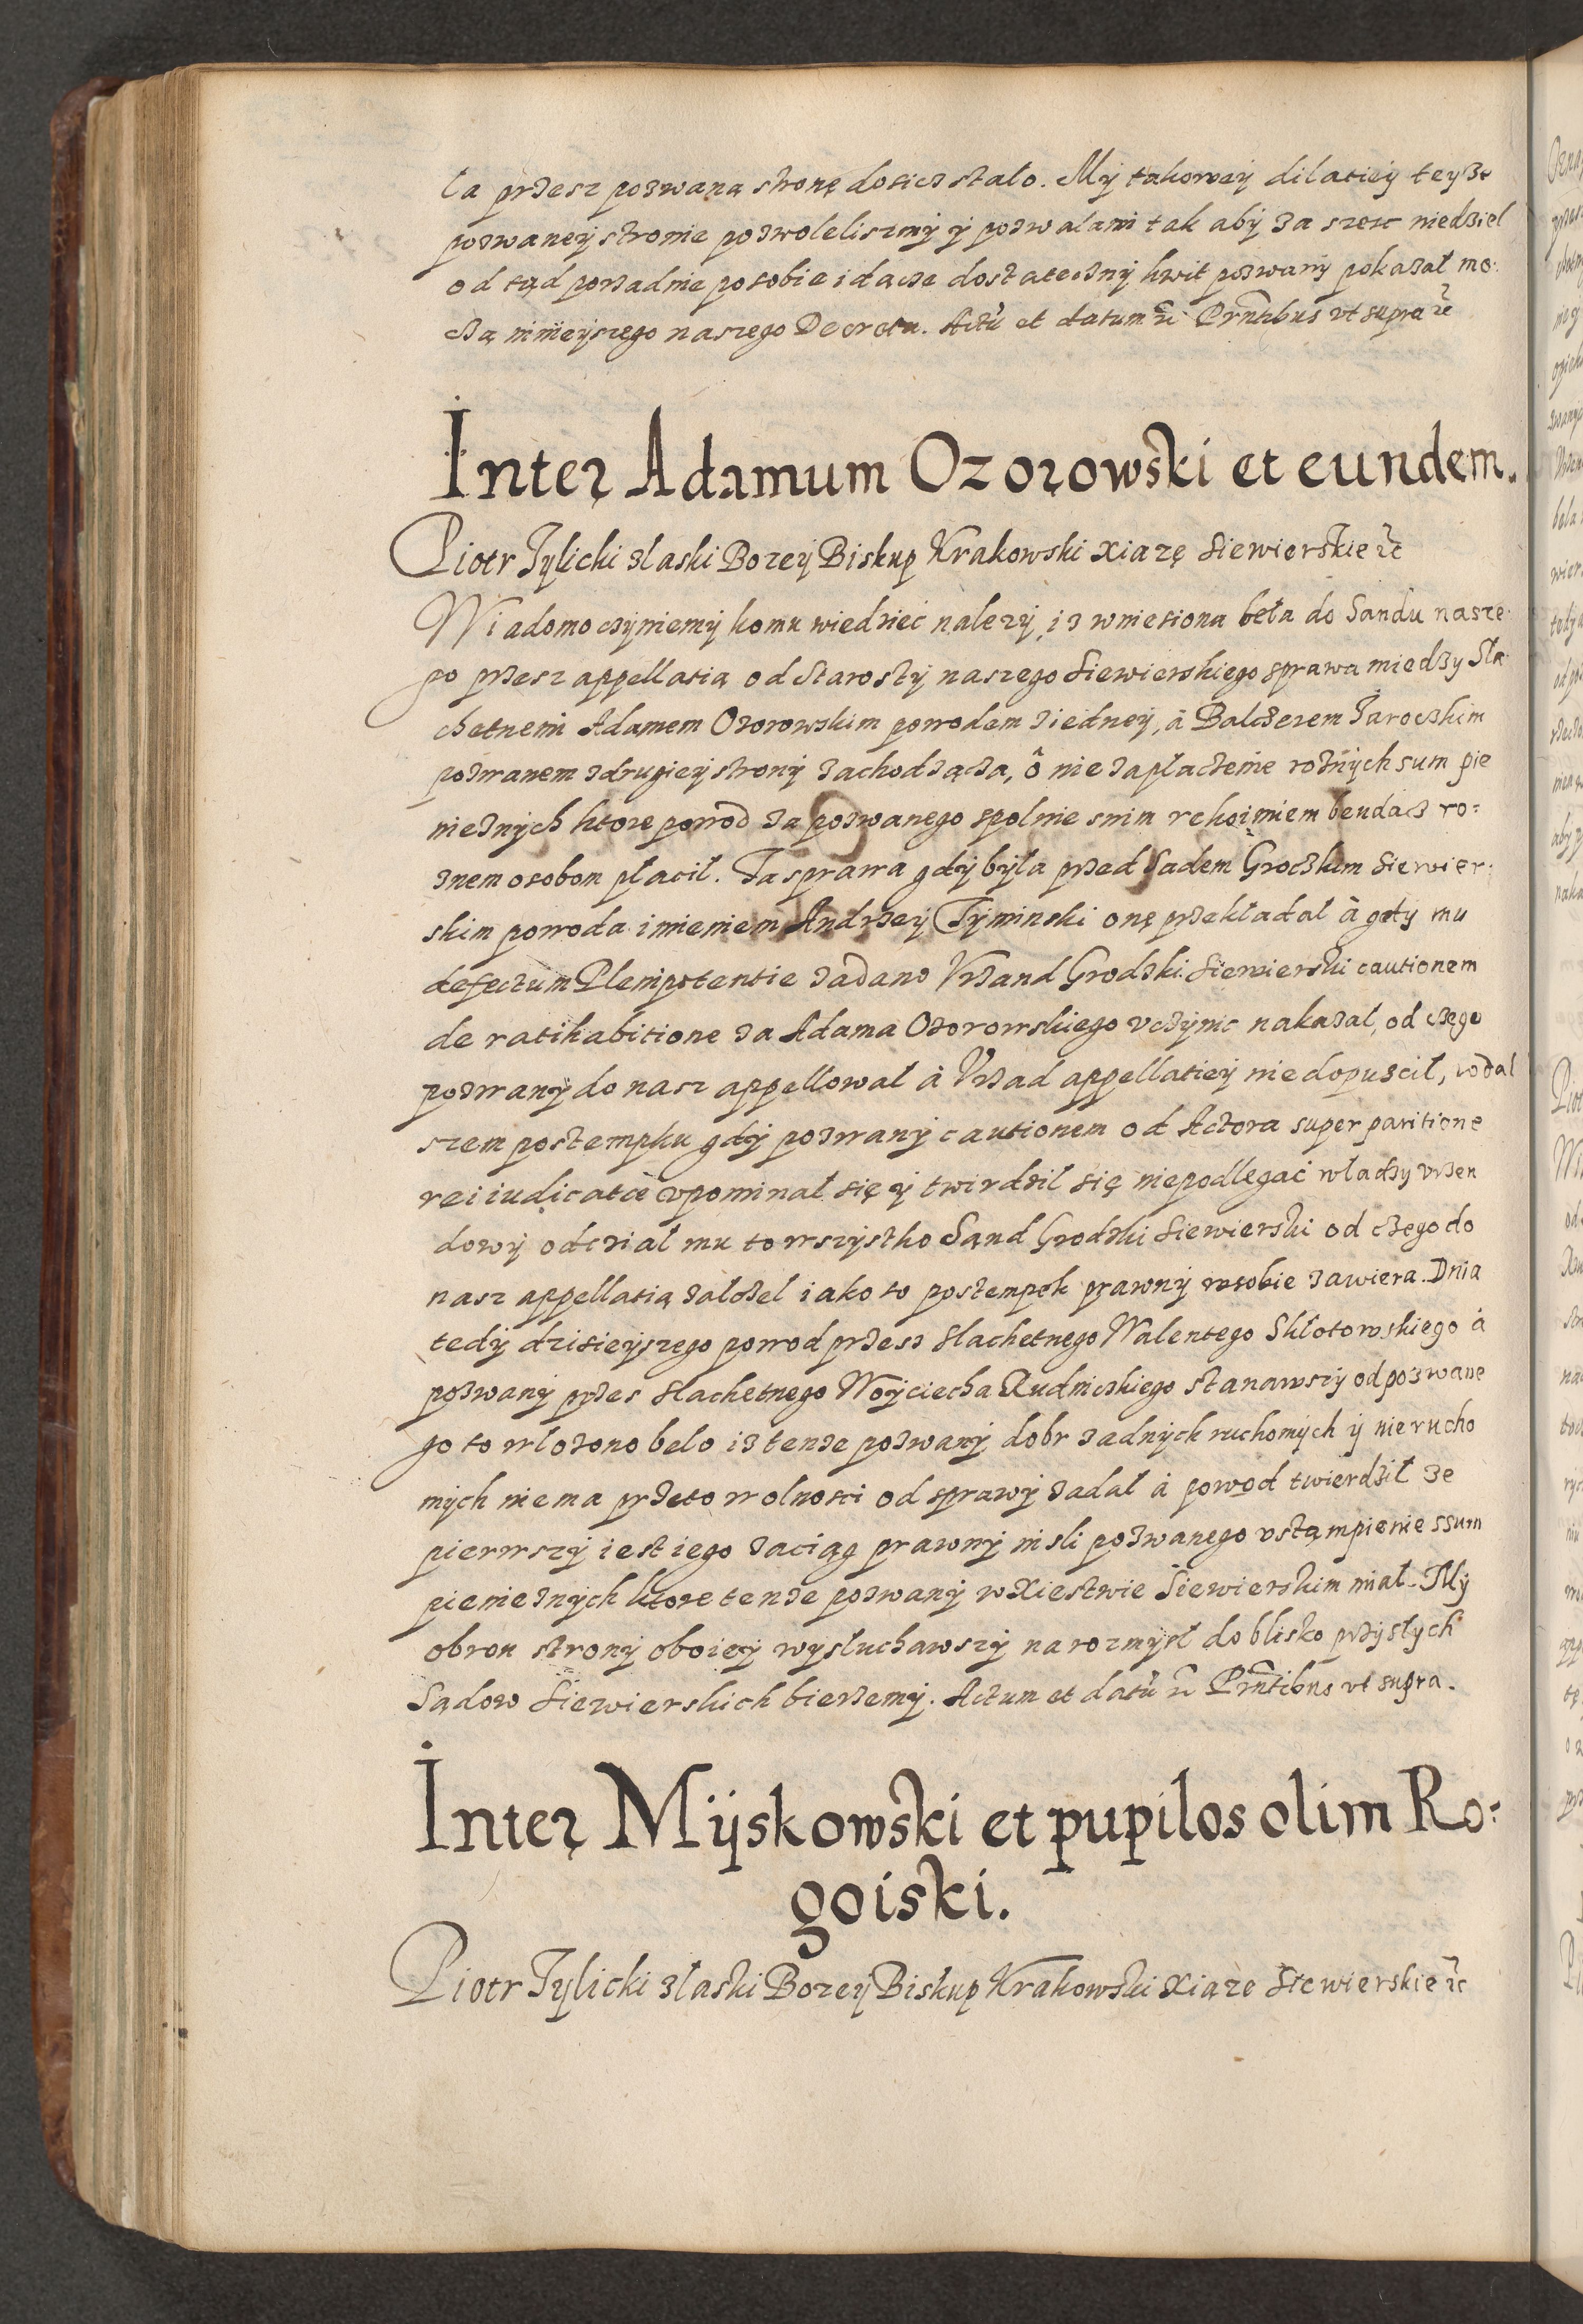 la przesz pozwaną stronę dosicz stalo. Mÿ takoweÿ dilatieÿ teÿze
pozwaneÿ stronie pozwoleliszmÿ ÿ pozwalami tak abÿ za szesc niedziel
od tąd porzadnie po sobie idącze dostatecznÿ kwit pozwanÿ pokazał mo:
czą ninieÿszego naszego Decretu. Actũ et datum ꝛc Prñtibus vt supra ꝛc
Inter Adamum Ozorowski et eundem.
Piotr Tylicki zlaski Bozeÿ Biskup Krakowski Xiazę Siewierskie ꝛc
Wiadomo czÿniemÿ komu wiedziec nalezÿ, iz wniesiona beła do Sandu nasze:
go przesz appellatią od Starostÿ naszego Siewierskiego sprawa miedzy Sla:
chetnemi Adamem Ozorowskim powodem z iedneÿ, à Balczerem Jaroczkim
pozwanem zdrugieÿ stronÿ zachodząca, ô nie zaplaczenie roznÿch sum pie
nieznÿch ktore powod za pozwanego spolnie snim rekoimiem bendacz ro:
znem osobom płacił. Ta sprawa gdÿ bÿła przed Sadem Groczkim Siewier:
skim powoda imieniem Andrzeÿ Tÿminski onę przekładał à gdy mu
defectum Plenipotentie zadano Vrzand Grodzki Siewierski cautionem
de ratihabitione za Adama Ozorowskiego vczÿnic nakazal, od czego
pozwanÿ do nasz appellował à Vrzad appellatieÿ nie dopuscił, w dal
szem postempku gdÿ pozwanÿ cautionem od Actora super paritione
rei iudicatæ vpominał się ÿ twirdził się niepodlegać władzy vrzen
dowÿ odcział mu to wszystko Sąnd Grodzki Siewierski od czego do
nasz appellatią założel iako to postempek prawnÿ w sobie zawiera. Dnia
tedÿ dzisieÿszego powod przesz slachetnego Walentego Skłotowskiego à
pozwanÿ przes slachetnego Woÿciecha Rudniczkiego stanawszÿ od pozwane
go to włozono belo iz tenze pozwanÿ dobr zadnÿch ruchomÿch ÿ nierucho
mÿch niema przeto wolnosci od sprawÿ zadał à powod twierdził ze
pierwszÿ iest iego zaciąg prawnÿ nisli pozwanego vstąmpienie ssum
pienieznÿch ktore tenze pozwanÿ w Xiestwie Siewierskim miał. Mÿ
obron stronÿ oboieÿ wysłuchawszÿ na rozmysł do blisko przÿsłych
Sądow Siewierskich bierzemÿ. Actum et datũ ꝛc Prñtibus vt supra.
Inter Mÿskowski et pupilos olim Ro:
goiski.
Piotr Tylicki zlaski Bozeÿ Biskup Krakowski Xiąze Siewierskie ꝛc